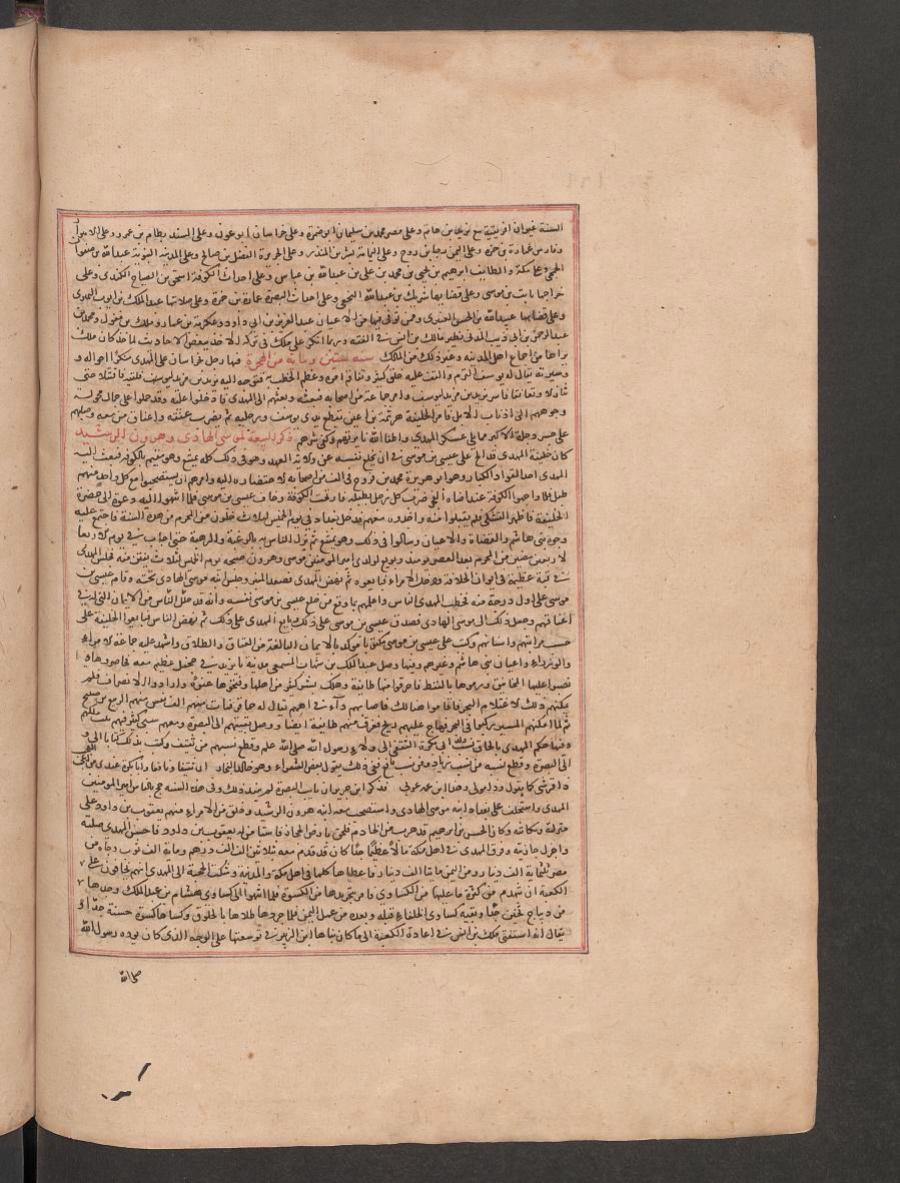 السنة غزوان افريقية مع يزيد بن حاتم وعلى مصر محمد بن سليمان ابو ضمرة وعلى خراسان ابو عون وعلى السند بسطام بن عمرو وعلى الاهواز
وفارس عمارة بن حمزة وعلى اليمن رجا بن روح وعلى اليمامة بشر بن المنذر وعلى الجزيرة الفضل بن صالح وعلى المدينة النبوية عبد الله بن صفوان
الجمحي وعلى مكة والطايف ابراهيم بن يحيى بن محمد بن علي بن عبد الله بن عباس وعلى احداث الكوفة اسحق بن الصباح الكندي وعلى
خراجها ثابت بن موسى وعلى قضايها شريك بن عبد الله النخعي وعلى احداث البصرة عمارة بن حمزة وعلى صلاتها عبد الملك بن ايوب النميري
وعلى قضايها عبيد الله بن الحسن العنبري وممن توفي فيها من الاعيان عبد العزيز بن ابي داود وعكرمة بن عمار ومالك بن مغول ومحمد بن
عبد الرحمن بن ابي ذيب المدني نظير مالك بن انس في الفقه وربما انكر على مالك في تركه الاخذ ببعض الاحاديث لما خذ كان مالك
يراها من اجماع اهل المدينة وغير ذلك من المالك سنة ستين وماية من الهجرة فيها رجل بخراسان على المهدي منكرا احواله و
وسيرته يقال له يوسف البرم والتف عليه خلق كثير وتفاقم امره وعظم الخطب به فتوجه اليه يزيد بن مزيد ليوسف فلقيه فاقتتلا حتى
تنازلا وتعانقا فاسر يزيد بن مزيد يوسف واسر جماعة من اصحابه فبعثه وبعثهم الى المهدي فادخلوا عليه وقد حملوا على جمال محولة
وجوههم الى اذناب الابل فامر الخليفة هرثمة بن اعين بقطع يدي يوسف ورجليه ثم يضرب عنقه واعناق من معه وصلبهم
على جسر دجلة الاكبر مما يلي عسكر المهدي واطفا الله نايرتهم وكفى شرهم ذكر البيعة لموسى الهادي وهرون الرشيد
كان خليفة المهدي قد الح على عيسى بن موسى في ان يخلع نفسه عن ولاية العهد وهو في ذلك كله يمتنع وهو مقيم بالكوفة فبعث اليه
المهدي احد القواد الكبار وهو ابو هريرة محمد بن فروخ في الف من اصحابه لاحتضاره اليه وامرهم ان يستصحبوا مع كل واحد منهم
طبل فلما واجهوا الكوفة عند اضاءة الفجر ضرب كل رجل بطبله فارتجت الكوفة وخاف عيسى بن موسى فلما انتهوا اليه وعوة الى حضرة
الخليفة فاظهر التشكي فلم يقبلوا منه واخذوه معهم فدخل بغداد في يوم الخميس لثلاث خلون من المحرم من هذه السنة فاجتمع عليه
وجوه بني هاشم والقضاة والاعيان وسالوا في ذلك وهو يمتنع ثم نزل الناس به بالرغبة والرهبة حتى اجاب في يوم الاربعا
لاربع مضين من المحرم بعد العصر يومئذ وبويع لولدي امير المومنين موسى وهرون صبيحة يوم الخميس لثلاث بقين منه فجلس المهدي
في قبة عظيمة في ايوان الخلافة ودخل الامراء فبايعوه ثم نهض المهدي فصعد المنبر وجلس ابنه موسى الهادي تحته وقام عيسى بن
موسى على اول درجة منه فخطب المهدي الناس واعلمهم بما وقع من خلع عيسى بن موسى نفسه وانه قد حلل الناس من الايمان التي له في
اعناقهم وجعل ذلك الى موسى الهادي فصدق عيسى بن موسى على ذلك بايع المهدي على ذلك ثم نهض الناس فبايعوا الخليفة على
حسب مراتبهم واسنانهم وكتب على عيسى بن موسى مكتوبا موكدا بالايمان البالغة من العتاق والطلاق واشهد عليه جماعة الامراء
والوزراء واعيان بني هاشم وغيرهم وفيها وصل عبد الملك بن شهاب المسمعي مدينة باربد في جحفل عظيم معه فحاصروها و
نصبوا عليها المجانيق ورموها بالنفط فاحرقوا منها طايفة وهلك بشر كثير من اهلها وفتحوها عنوة وارادوا الانصراف فلم
يمكنهم ذلك لاغتلام البحر فاقاموا هنالك فاصابهم داء في افواههم يقال له حمام قر فمات منهم الف نفس منهم الربيع بن صبيح
ثم لما امكنهم المسير ركبوا في البحر فهاج عليهم ريح فغرق منهم طايفة ايضا ووصل بقيتهم الى البصرة ومعهم سبي كثير فيهم بنت ملكهم
وفيها حكم المهدي بالحاق نسب ولد ابي بكرة الثقفي الى ولاء رسول الله صلى الله عليه وسلم وقطع نسبهم من ثقيف وكتب بذلك كتابا الى و
الى البصرة وقطع نسبه من نسب زياد ومن نسب نافع ففي ذلك يقول بعض الشعراء وهو خالد النجار ان زيادا ونافعا وابا بكرة عندي من اعجب العجب
ذا قرشي كما يقول وذا مولى وهذا ابن عمه عربي قد ذكر ابن جرير ان نايب البصرة لم ينفذ ذلك وفي هذه السنة حج بالناس امير المومنين
المهدي واستخلف على بغداد ابنه موسى الهادي واستصحب معه ابنه هرون الرشيد وخلق من الامراء منهم يعقوب بن داود على
منزلة ومكانة وكان الحسن بن ابرهيم قد هرب من الخادم فلحق بارض الحجاز فاستامن له يعقوب بن داود فاحسن المهدي صلته
واجزل جايزته وفرق المهدي في اهل مكة مالا عظيما جدا كان قد قدم معه ثلاثين الف الف درهم وماية الف ثوب وجاه من
مصر ثلثماية الف دينار ومن اليمن مايتا الف دينار فاعطاها كلها في اهل مكة والمدينة وشكت الحجبة الى المهدي انهم يخافون على
الكعبة ان تنهدم من كثرة ما عليها من الكساوي فامر بتجريدها من الكسوة فلما انتهوا الى كساوي هشام بن عبد الملك وجدها
من ديباج ثخين جدا وبقية كساوي الخلفاء قبله وبعده من عمل اليمن فلما جردها طلاها بالخلوق وكساها كسوة حسنة جدا و
يقال انه استفتى ملك بن انس في اعادة الكعبة الى ما كان بناها ابن الزبير في توسعتها على الوجه الذي كان يوده رسول الله
صلى الله